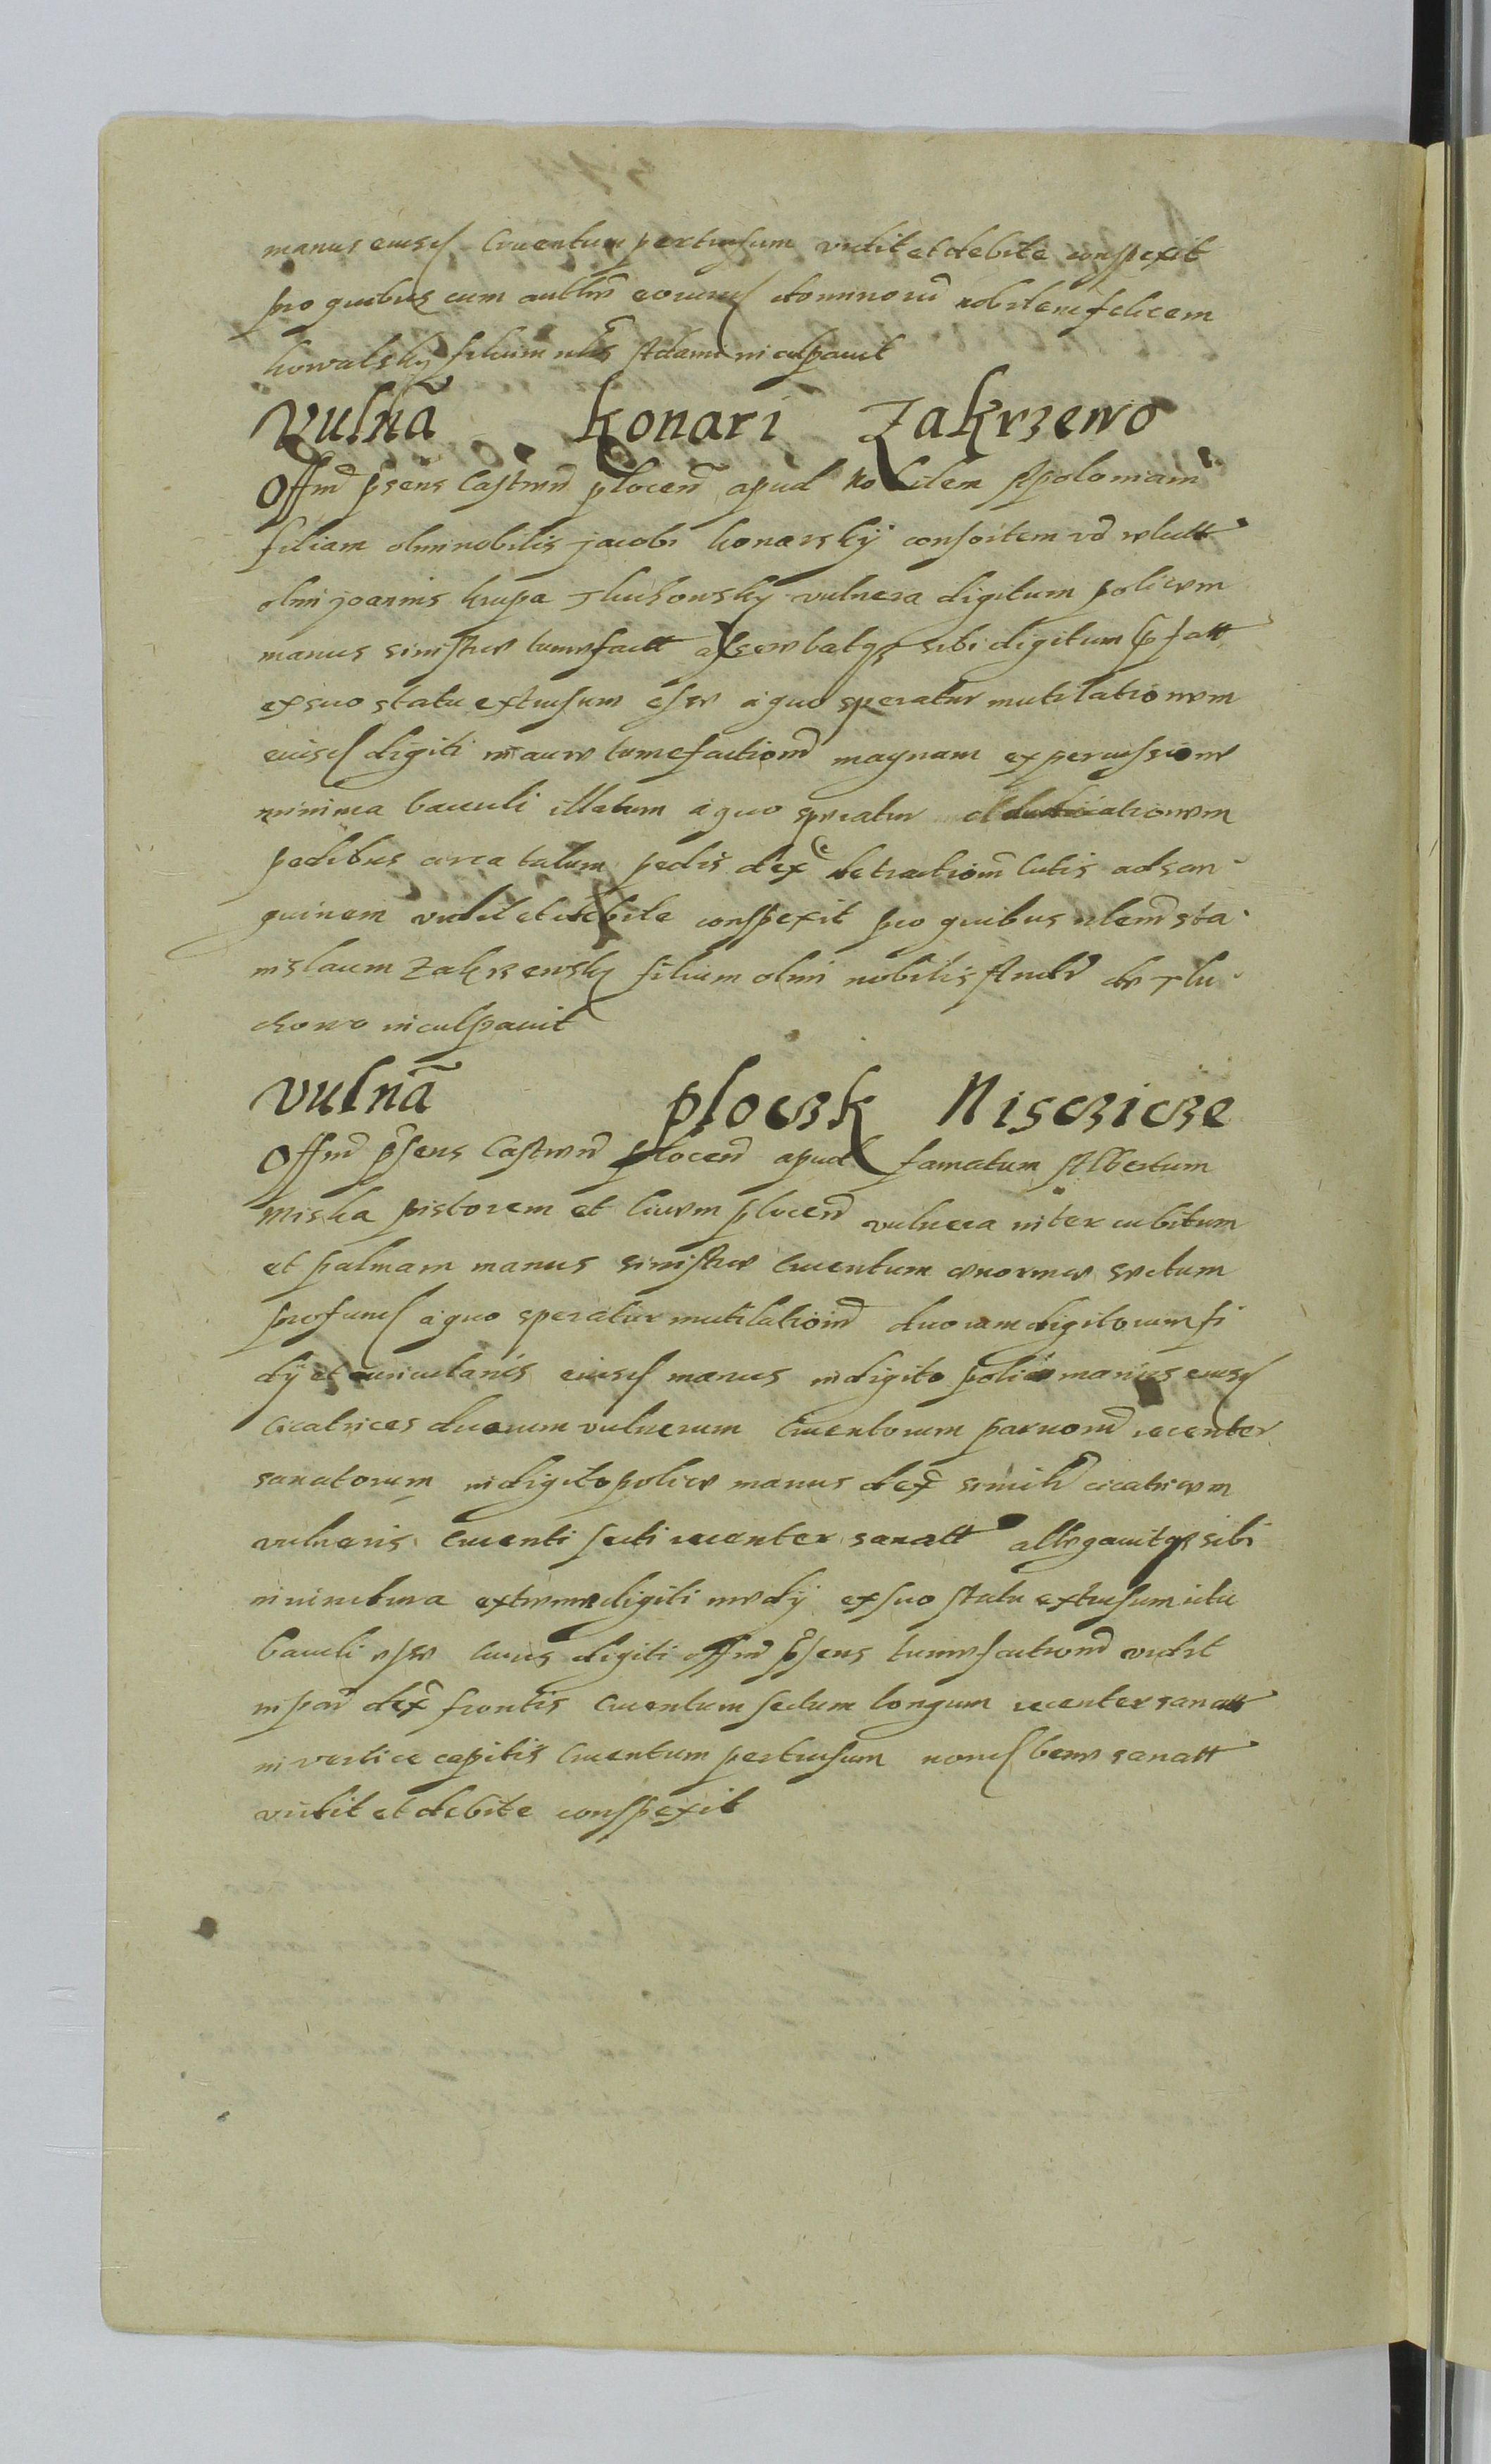 manus eiusd cruentum pertusum vidit et debite conspexit
pro quibus cum aliis eorund dominoru nobilem felicem
kowalsky filium nlis Adami inculpavit
Vulna konari Zakrzewo
Offm psens Castren plocen apud nobilem Apoloniam
filiam olim nobilis jacobi konarskÿ consortem vo relictt
olim joannis krupa Tluchowsky vulnera digitum policem
manus sinistre tumefactt asserebatqs sibi digitum
ex suo statu extrusum esse a quo speratur mutilationem
eiusd digiti in aure tumefactiom magnam ex percussione
minima baculi illatum a quo speratur
pedibus circa talum pedis dex detractiom cutis ad san
guinem vidit et debite conspexit pro quibus nlem sta
nislaum Zakrzewsky filium olim nobilis Andr de Tlu
chowo inculpavit
Vulna ploczk Nisczicze
Offm psens Castren plocen apud famatum Albertum
Miska pistorem et civem plocen vulnera inter cubitum
et palmam manus sinistre cruentum enorme sectum
profund a quo speratur mutilatiom duorum digitorum fi
dÿ et auricularis eiusd manus in digito police manus eiusd
cicatrices duorum vulnerum cruentorum parvoru recenter
sanatorum in digito police manus dex simili cicatricem
vulneris cruenti secti recenter sanatt allegavitqs sibi
in iunctura extreme digiti medÿ ex suo statu extrusum ictu
baculi esse cuius digiti offm psens tumefactiom vidit
in par dex frontis cruentum sectum longum recenter sanatt
in vertice capitis cruentum pertusum nond bene sanatt
vidit et debite conspexit